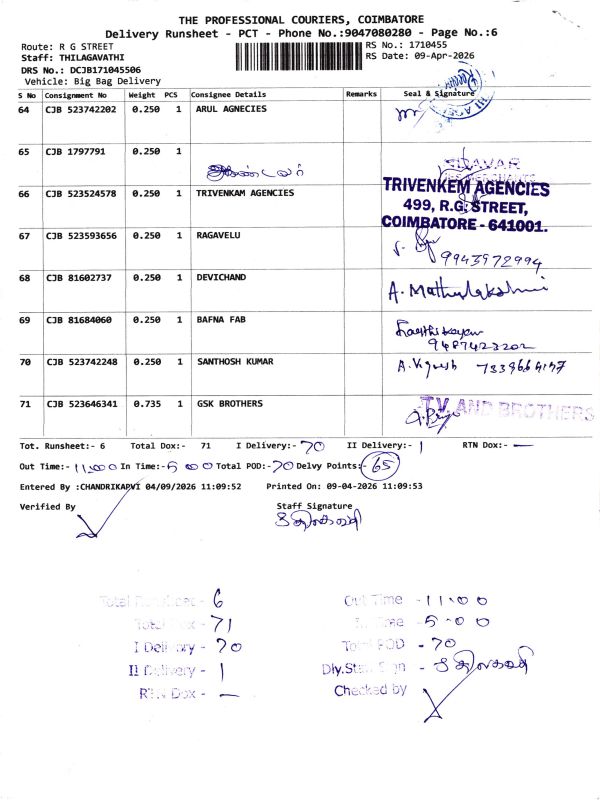 THE PROFESSIONAL COURIERS, COIMBATORE
Delivery Runsheet - PCT - Phone No.:9047080280 - Page No.:6
Route: R G STREET
RS No.: 1710455
Staff: THILAGAVATHI
RS Date: 09-Apr-2026
DRS No.: DCJB171045506
Vehicle: Big Bag Delivery
S No Consignment No Weight PCS Consignee Details Remarks Seal & Signature
64 CJB 523742202 0.250 1 ARUL AGNECIES
65 CJB 1797791 0.250 1
66 CJB 523524578 0.250 1 TRIVENKAM AGENCIES
TRIVENKEM AGENCIES
499, R.G. STREET,
COIMBATORE - 641001.
67 CJB 593593656 0.250 1 RAGAVELU
9943972994
68 CJB 81602737 0.250 1 DEVICHAND A. Mathulakshmi
69 CJB 81684060 0.250 1 BAFNA FAB
9487423202
70 CJB 523742248 0.250 1 SANTHOSH KUMAR A. Vignesh
71 CJB 523646341 0.735 1 GSK BROTHERS T.V. AND BROTHERS
Tot. Runsheet:- 6 Total Dox:- 71 I Delivery:- 70 II Delivery:- 1 RTN Dox:- —
Out Time:- 11:00 In Time:- 5:00 Total POD:- 70 Delvy Points:- 65
Entered By :CHANDRIKAPVI 04/09/2026 11:09:52 Printed On: 09-04-2026 11:09:53
Verified By Staff Signature
திலகவதி
Total Runsheet - 6
Out Time - 11:00
Total Dox - 71
In Time - 5:00
I Delivery - 70
Total POD - 70
II Delivery - 1
Dly.Staff Sign - திலகவதி
RTN Dox - —
Checked by